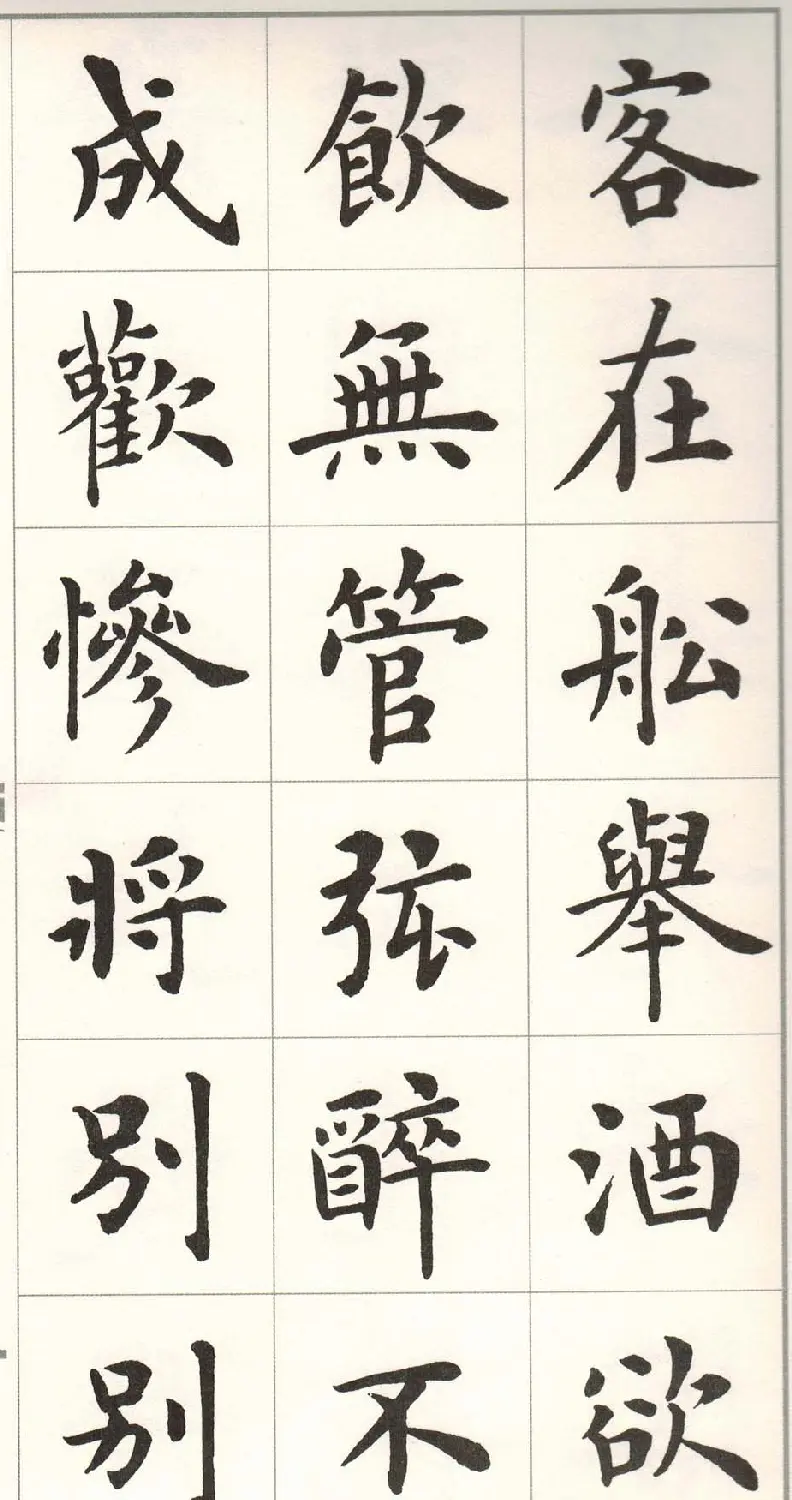 客在舩舉酒欲
飲無管弦醉不
成歡慘將別別